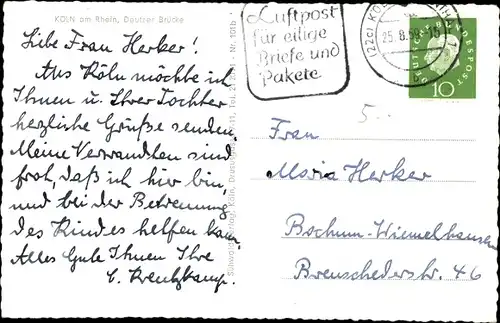 KÖLN am Rhein, Deutzer Brücke
Liebe Frau Herker!
Aus Köln möchte ich
Ihnen u. Ihrer Tochter
herzliche Grüße senden.
Meine Verwandten sind
froh, daß ich hier bin,
und bei der Betreuung
des Kindes helfen kann.
Alles Gute Ihnen Ihre
C. Kreutzkamp.
Luftpost
für eilige
Briefe und
Pakete
(22c) KÖLN
25.8.59-15
DEUTSCHE BUNDESPOST
10
5.
Frau
Maria Herker
Bochum-Wiemelhausen
Brenschederstr. 46